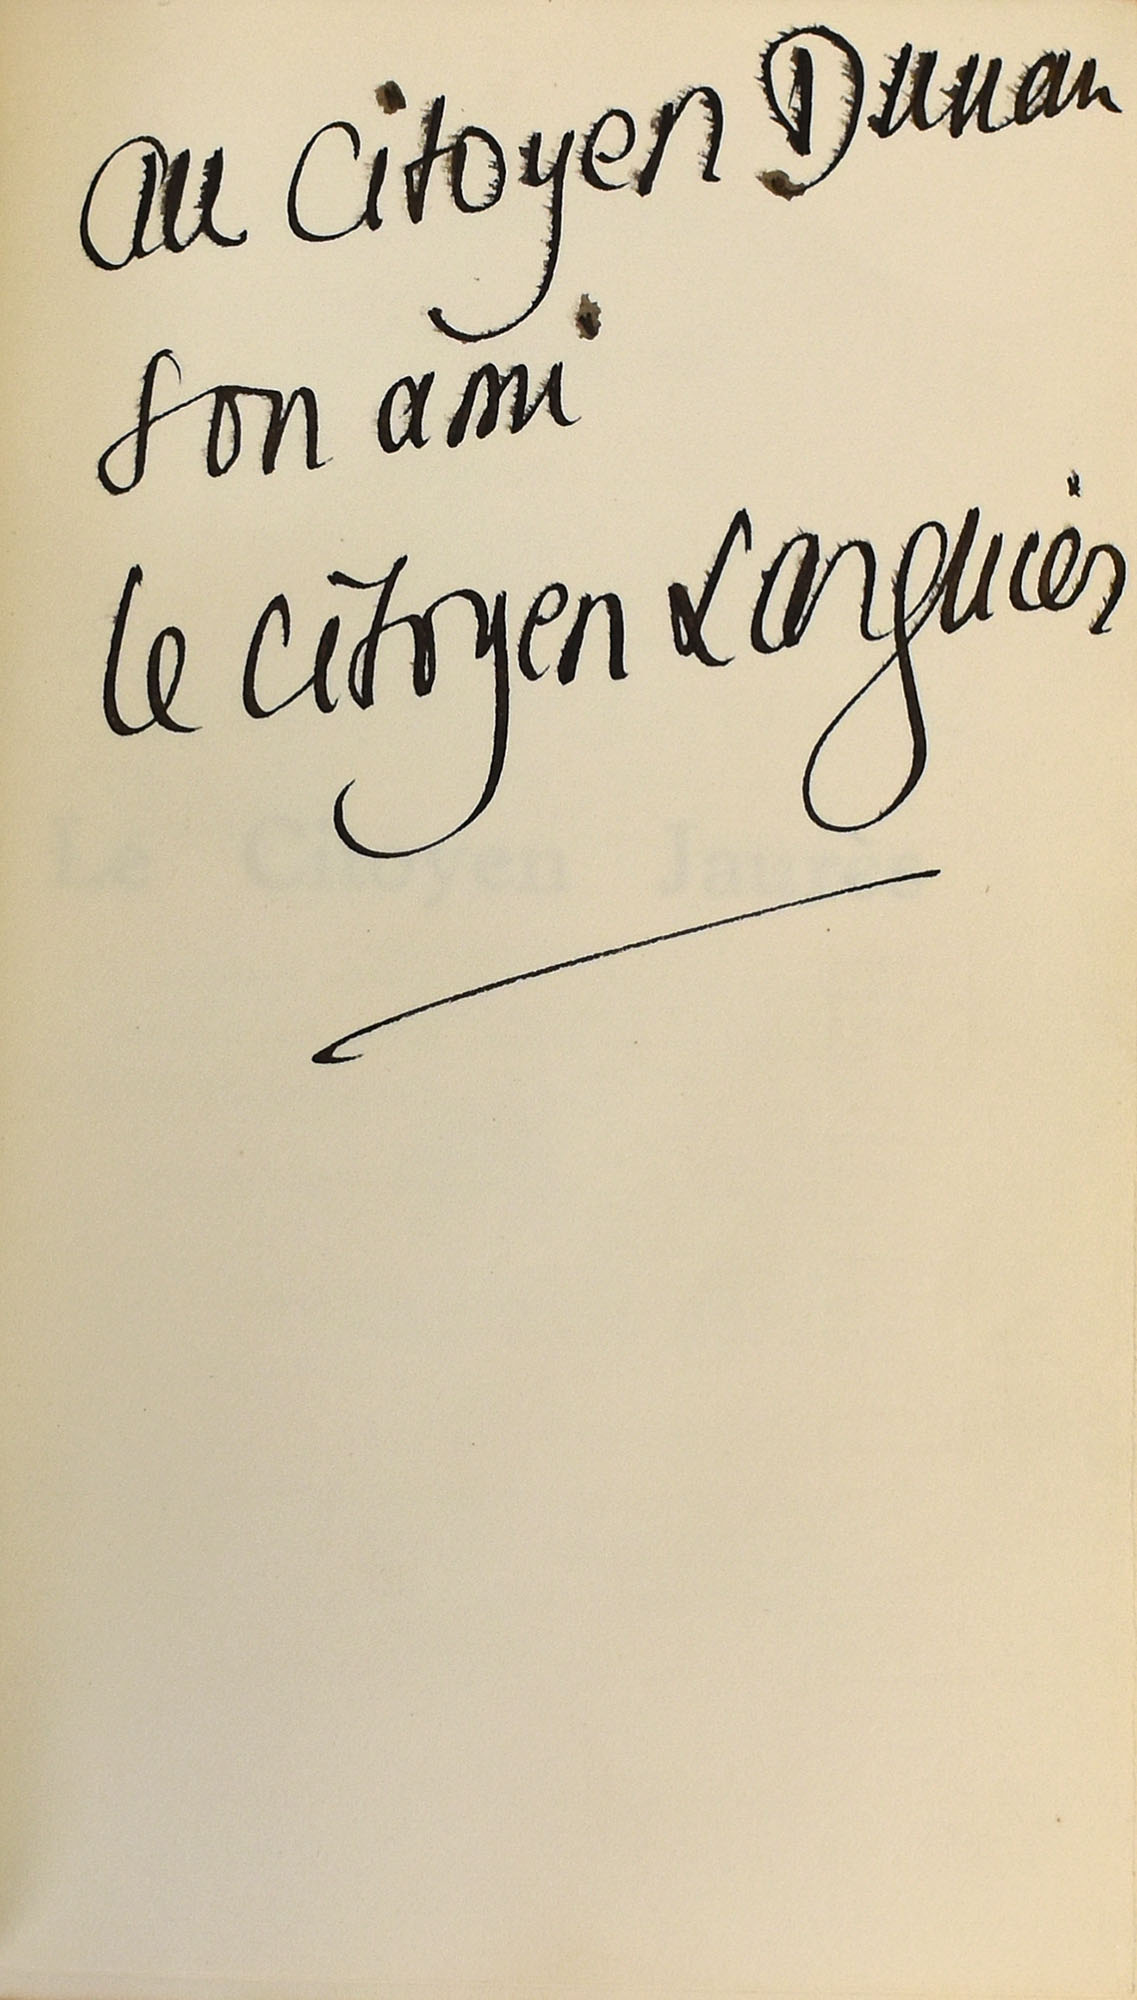 au Citoyen Dunan
son ami
le citoyen Larguier
Le Citoyen Jaurès